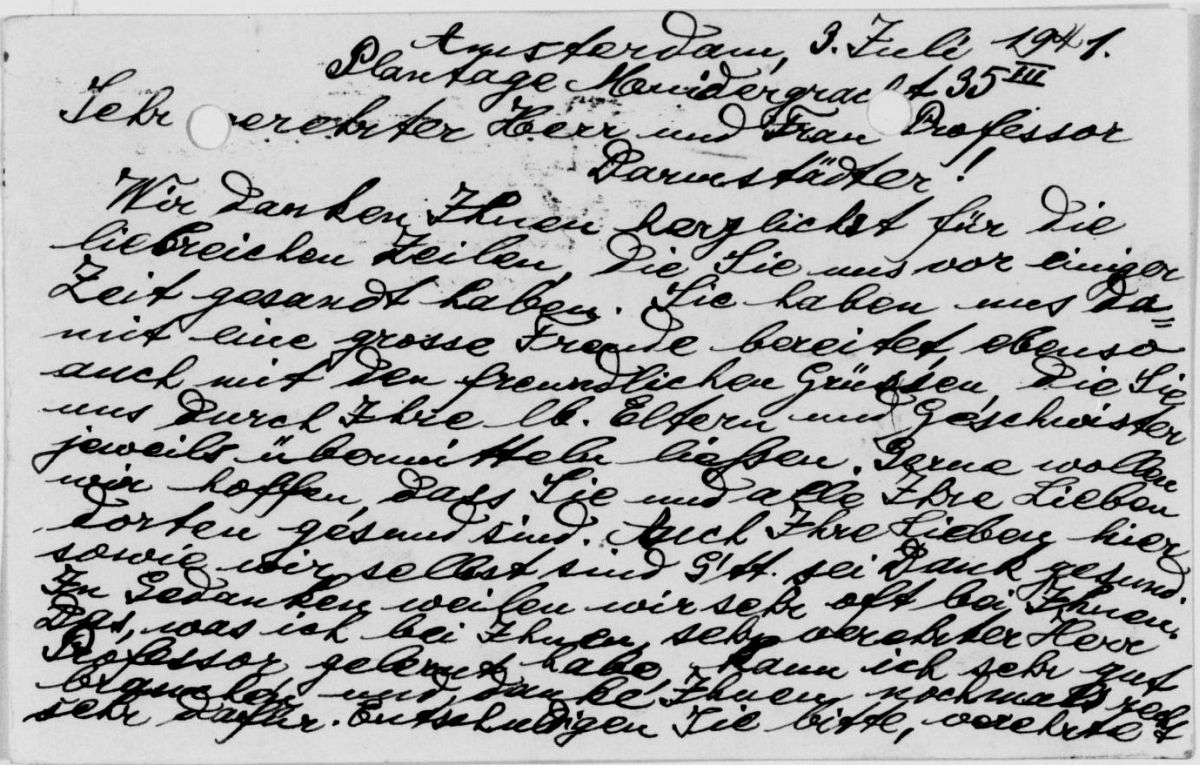 Amsterdam, 3. Juli 1941.
Plantage Muidergracht 35 III
Sehr verehrter Herr und Frau Professor
Darmstädter!
Wir danken Ihnen herzlichst für die
liebreichen Zeilen, die Sie uns vor einiger
Zeit gesandt haben. Sie haben uns da=
mit eine grosse Freude bereitet, ebenso
auch mit den freundlichen Grüssen, die Sie
uns durch Ihre lb. Eltern und Geschwister
jeweils übermitteln liessen. Gerne wollen
wir hoffen, dass Sie und alle Ihre Lieben
dorten gesund sind. Auch Ihre Lieben hier
sowie wir selbst sind G'tt. sei Dank gesund.
In Gedanken weilen wir sehr oft bei Ihnen.
Das, was ich bei Ihnen, sehr verehrter Herr
Professor gelernt habe, kann ich sehr gut
brauchen und danke Ihnen nochmals recht
sehr dafür. Entschuldigen Sie bitte, verehrte